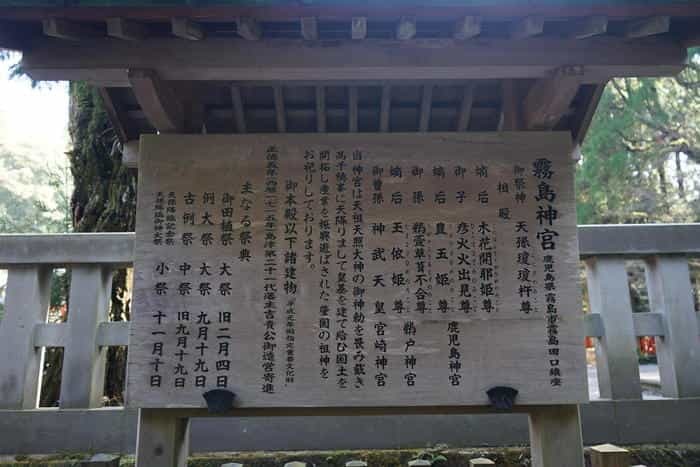 霧島神宮 鹿児島県霧島市霧島田口鎮座
御祭神 天孫瓊瓊杵尊
相殿
嫡后 木花開耶姫尊
御子 彦火火出見尊
嫡后 豊玉姫尊 鹿児島神宮
御孫 鵜葺草葺不合尊
嫡后 玉依姫尊 鵜戸神宮
御曽孫 神武天皇 宮崎神宮
当神宮は天祖天照大神の御神勅を畏み戴きて
高千穂峯に天降りまして皇基を建て給ひ国土を
開拓し産業を振興遊ばされた肇国の祖神を
お祀りしております。
御本殿以下諸建物 平成元年国指定重要文化財
正徳五年 西暦一七一五年 島津第二十一代藩主吉貴公御造営寄進
主なる祭典
御田植祭 大祭 旧二月四日
例大祭 大祭 九月十九日
古例祭 中祭 旧九月十九日
天孫降臨記念祭
天孫降臨御神火祭 小祭 十一月十日